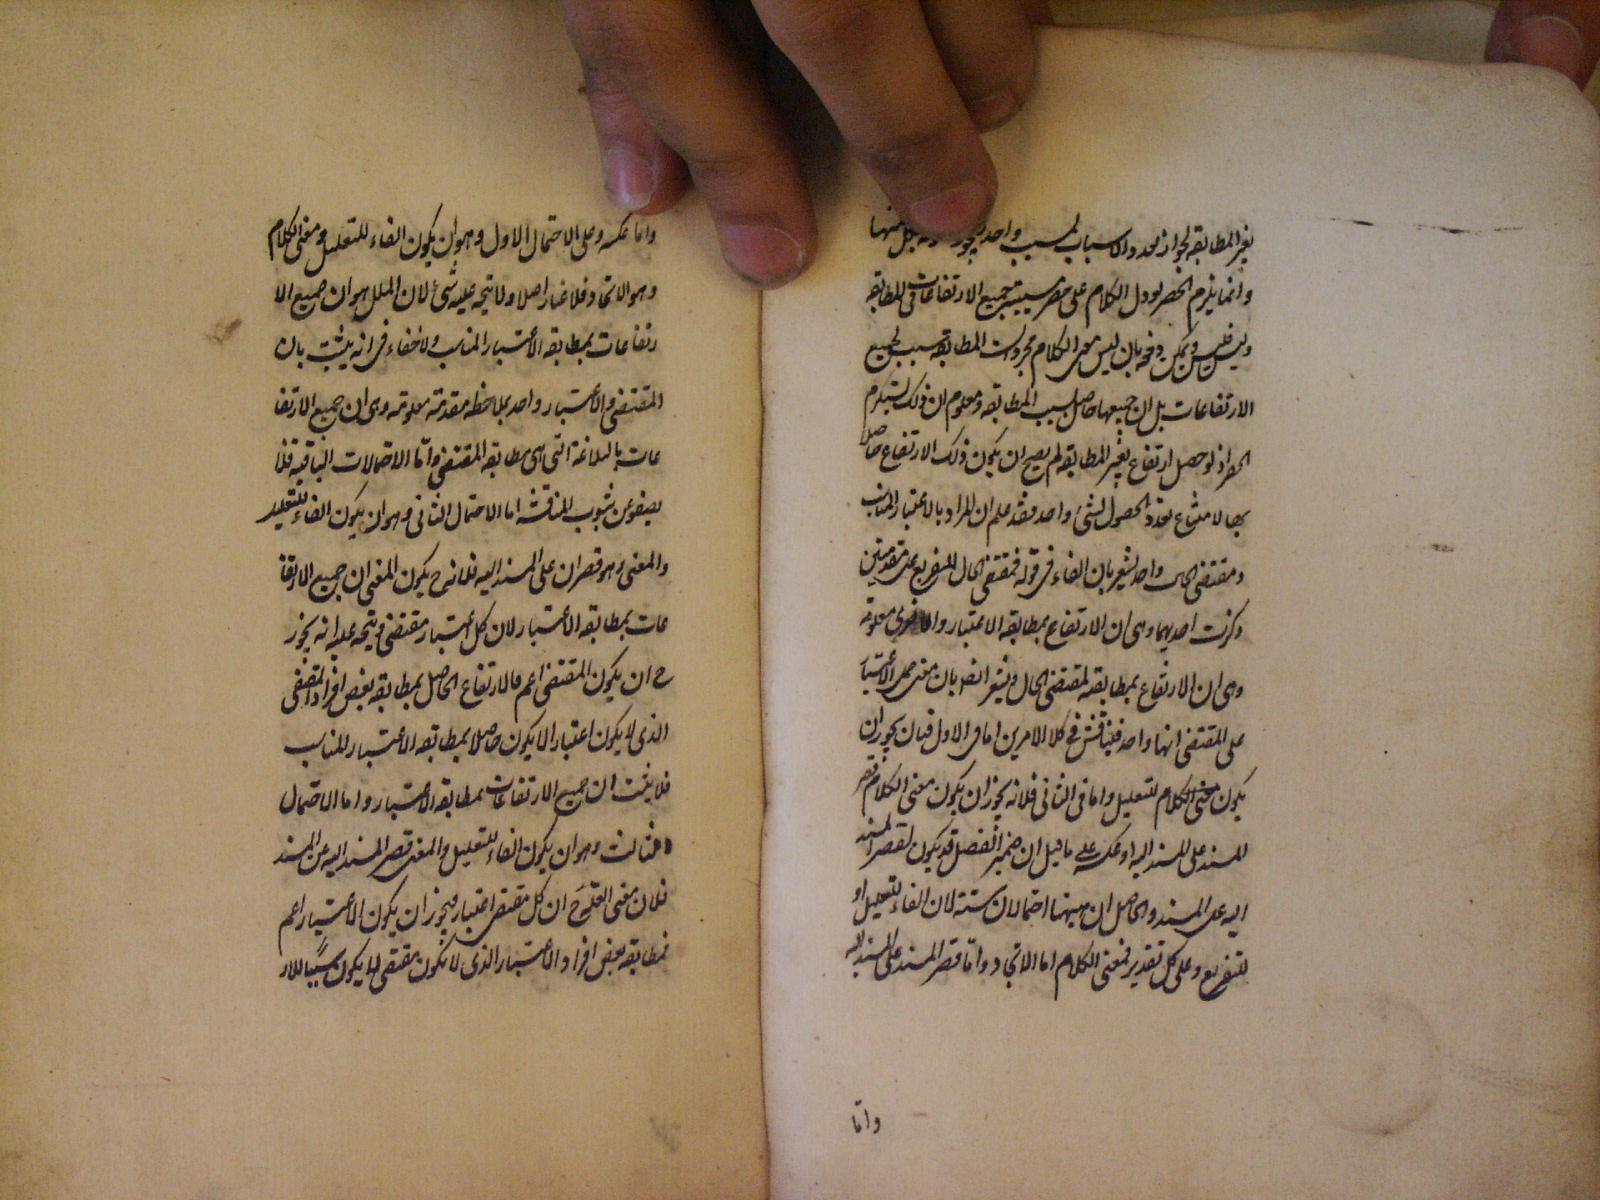 بغير المطابقة لجواز تعدد الاسباب لمسبب واحد منها
وانما يلزم الحصر لو دل الكلام على حصر سببية جميع الارتفاعات فى المطابقة
وليس فليس ويمكن دفعه بان ليس معنى الكلام مجرد ان المطابقة سبب لجميع
الارتفاعات بل ان جميعها حاصل بسبب المطابقة ومعلوم ان ذلك يستلزم
الحصر اذ لو حصل ارتفاع بغير المطابقة لم يصح ان يكون ذلك الارتفاع حاصلا
بها لامتناع تعدد الحصول لشئ واحد فقد علم ان المراد بالاعتبار المناسب
ومقتضى الحال واحد يشعر بان الفاء فى قوله فمقتضى الحال للتفريع على مقدمتين
ذكرت احديهما وهى ان الارتفاع بمطابقة الاعتبار والاخرى معلومة
وهى ان الارتفاع بمطابقة لمقتضى الحال ويشعر ايضا بان معنى حمل الاعتبار
على المقتضى انها واحد فيناقش فى كلا الامرين اما فى الاول فبان يجوز ان
يكون معنى الكلام للتعليل واما فى الثانى فلانه يجوز ان يكون معنى الكلام قصر
المسند على المسند اليه او عكسه على ما قيل ان ضمير الفصل قد يكون لقصر المسند
اليه على المسند والحاصل ان ههنا احتمالات ستة لان الفاء للتعليل او
للتفريع وعلى كل تقدير فمعنى الكلام اما الاتحاد واما قصر المسند على المسند اليه
واما
واما عكسه وعلى الاحتمال الاول وهو ان يكون الفاء للتعليل ومعنى الكلام
وهو الاتحاد فلا غبار اصلا ولا يتجه عليه شئ لان المعلل هو ان جميع الا
رتفاعات بمطابقة الاعتبار المناسب ولا خفاء فى انه يثبت بان
المقتضى والاعتبار واحد بملاحظة مقدمة معلومة وهى ان جميع الارتفا
عات بالبلاغة التى هى مطابقة المقتضى واما الاحتمالات الباقية فلا
يصفو عن شوب المناقشة اما الاحتمال الثانى وهو ان يكون الفاء للتعليل
والمعنى وهو قصر ان على المسند اليه فلانه ح يكون المعنى ان جميع الارتفا
عات بمطابقة الاعتبار لان كل اعتبار مقتضى ويتجه عليه انه يجوز
ح ان يكون المقتضى اعم فالارتفاع الحاصل بمطابقة بعض افراد المقتضى
الذى لا يكون اعتبار الا يكون حاصلا بمطابقة الاعتبار المناسب
فلا يثبت ان جميع الارتفاعات بمطابقة الاعتبار واما الاحتمال
الثالث وهو ان يكون الفاء للتعليل والمعنى قصر المسند اليه عن المسند
فلان معنى ح ان كل مقتضى اعتبار فيجوز ان يكون الاعتبار اعم
فمطابقة بعض افراد الاعتبار الذى لا يكون مقتضى لها يكون سببا للار